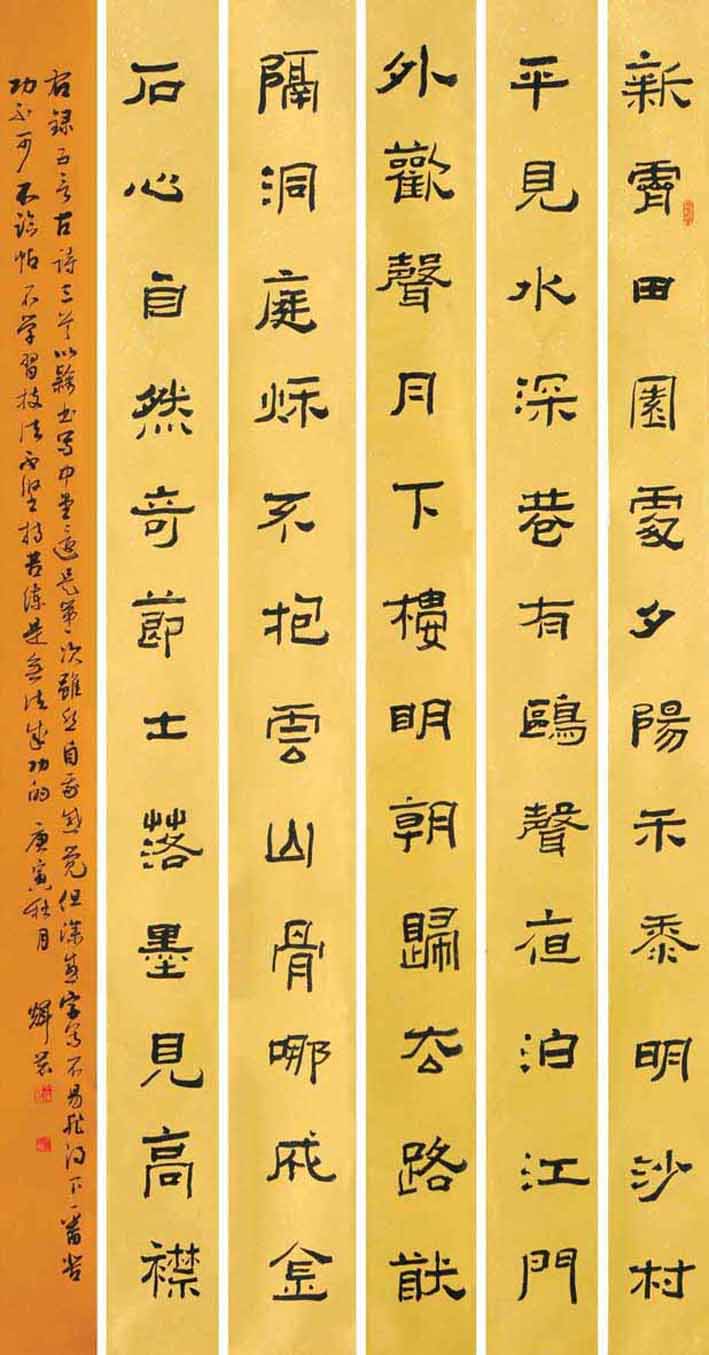 新霽田園處夕陽禾黍明沙村
平見水深巷有鷗聲夜泊江門
外歡聲月下樓明朝歸去路猷
隔洞庭秋不抱雲山骨哪成金
石心自然奇節士落墨見高襟
右録五言古詩三首以隸书写中堂這是第一次雖然自我感覺但深感字写不易非得下一番苦
功不可不臨帖不学習技法不堅持苦練是無法成功的 庚寅秋月 輝